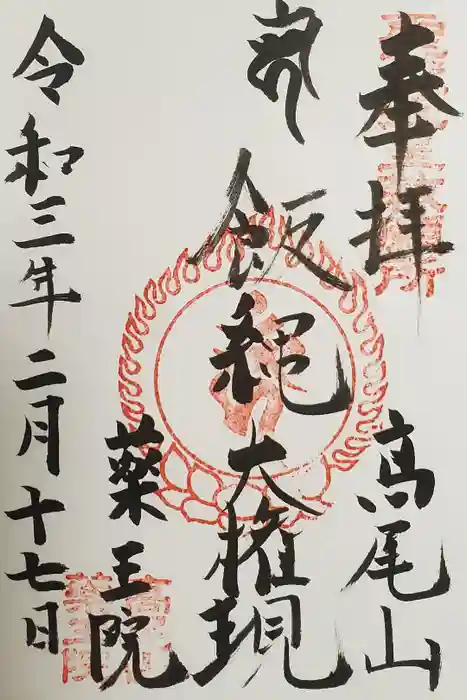 奉拝
高尾山
飯縄大権現
薬王院
令和三年二月十七日